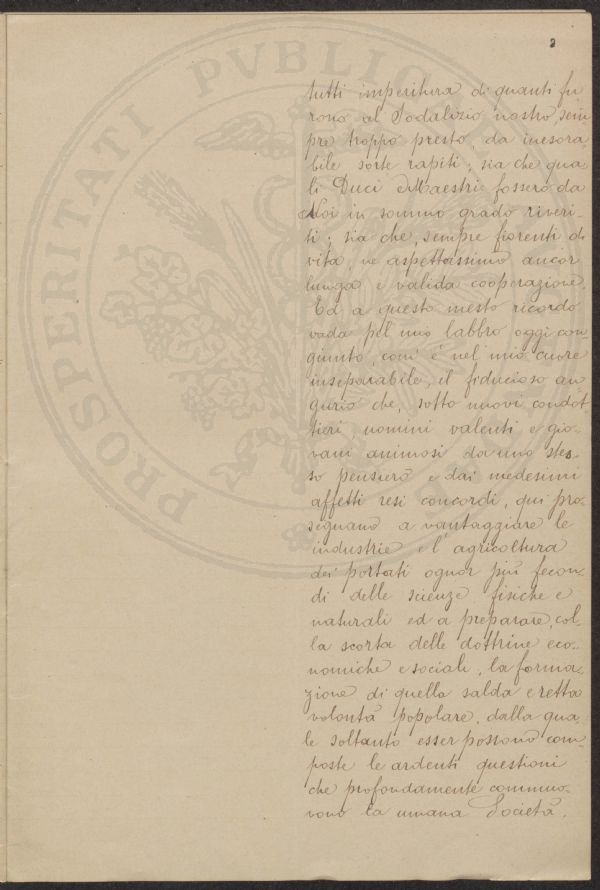 2
PROSPERITATI PVBLIC
tutti imperitura di quanti fu
rono al Sodalizio nostro, sem
pre troppo presto, da inesora,
bile sorte rapiti; sia che qua
li Duci e Maestri fossero da
Noi in sommo grado riveri-
ti; sia che, sempre fiorenti di
vita, ne aspettassimo ancor
lunga e valida cooperazione.
Ed a questo mesto ricordo
vada pel mio labbro oggi con-
giunto, com' è nel mio cuore
inseparabile, il fiducioso au-
gurio che, sotto nuovi condot
tieri, uomini valenti e gio-
vani animosi da uno stes-
so pensiero e dai medesimi
affetti resi concordi, qui pro-
seguano a vantaggiare le
industrie e l'agricoltura
dei portati ognor più fecon-
di delle scienze fisiche e
naturali ed a preparare, col-
la scorta delle dottrine eco-
nomiche e sociali, la forma-
zione di quella salda e retta
volontà popolare, dalla qua-
le soltanto esser possono com-
poste le ardenti questioni
che profondamente commuo-
vono la umana Società.